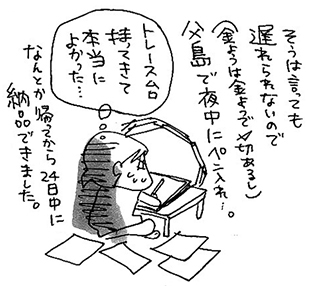 そうは言っても
遅れられないので
(金ようは金ようで〆切あるし)
父島で夜中にペン入れ…。
トレース台
持ってきて
本当に
よかった…
なんとか帰ってから24日中に
納品できました。